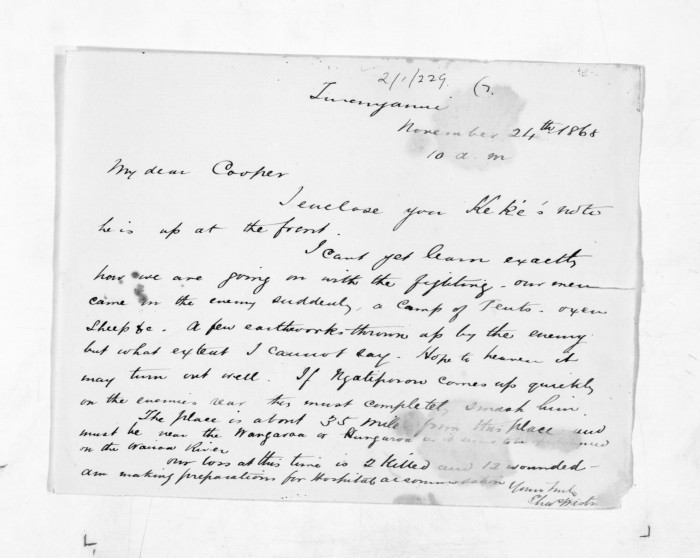 2/1/229. (7.
Turenganui
November 24th 1868
10 a.m
My dear Cooper
I enclose you Keke's note
he is up at the front.
I cant yet learn exactly
how we are going on with the fighting - our men
came on the enemy suddenly, a camp of Tents - oxen
Sheep &c. A few earthworks thrown up by the enemy
but what extent I cannot say. Hope to heaven it
may turn out well. If Ngatiporou comes up quickly
on the enemies rear this must completely smash him.
The place is about 35 miles from this place and
must be near the Wangaroa or Hungaroa
on the Wairoa River
our loss at this time is 2 killed and 12 wounded -
am making preparations for Hospital accommodation
Yours truly